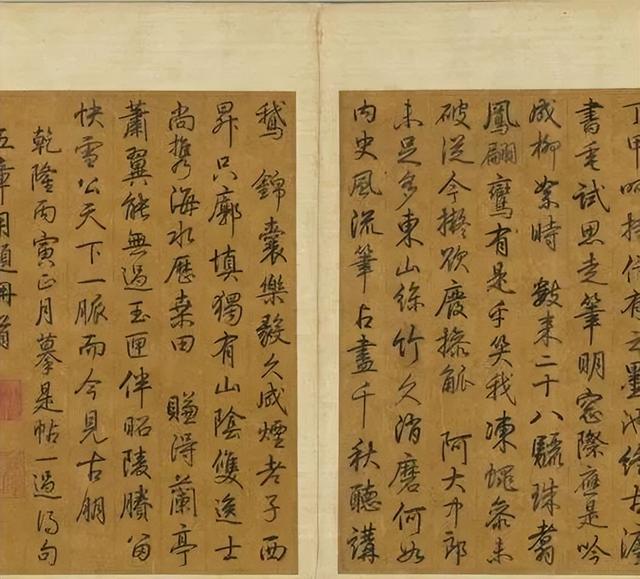 丁甲呵持信有之墨池終古
書重試思走筆明窗際應是吟
成柳絮時 數來二十八驪珠翥
鳳翩鸞有是乎笑我凍蠅參未
破從今擬欲廢操觚 阿大中郎
未足多東山絲竹久消磨何如
內史風流筆占盡千秋聽講
鵝 錦囊樂毅久成煙老子西
昇只廓填獨有山陰雙逸士
尚攜海水歷桑田 賺得蘭亭
蕭翼能無過玉匣伴昭陵賸留
快雪公天下一脈而今見古朋
乾隆丙寅正月摹是帖一過得句
五章用題冊首